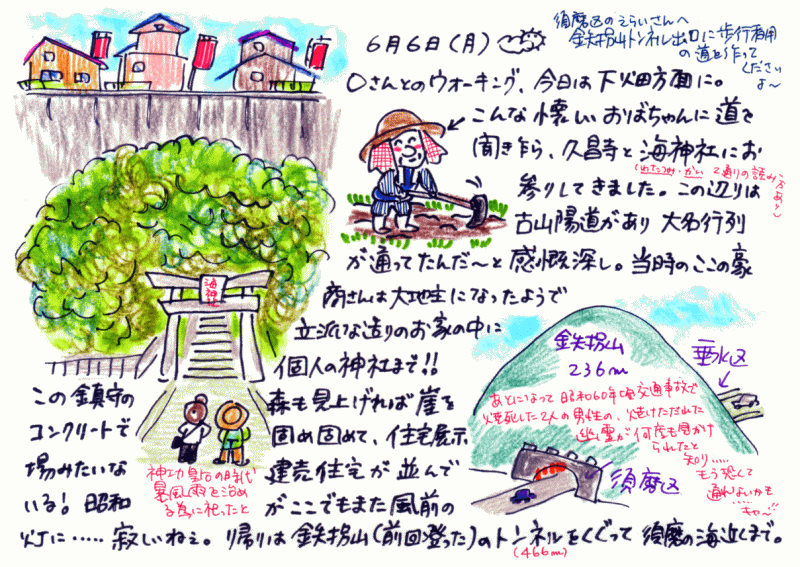 須磨区のえらいさんへ
鉄拐山トンネル出口に歩行者用
の道を作って
ください
よ〜
6月6日(月)
Oさんとのウォーキング、今日は下畑方面に。
こんな懐しいおばちゃんに道を
聞き乍ら、久昌寺と海神社にお
(わたつみ・かい 2通りの読み方あり)
参りしてきました。この辺りは
古山陽道があり 大名行列
が通ってたんだ〜と感慨深し。当時のここの豪
商さんは大地主になったようで
立派な造りのお家の中に
個人の神社まで!!
この鎮守の森も見上げれば崖を
コンクリートで固め固めて、住宅展示
場みたいな建売住宅が並んで
いる!昭和がここでもまた風前の
灯に・・・・・寂しいねぇ。帰りは鉄拐山(前回登った)のトンネルをくぐって須磨の海近くまで。
(466m)
海神社
神功皇后の時代
暴風雨を治め
る為に祀ったと
鉄拐山
236m
垂水区
あとになって昭和60年頃交通事故で
焼死した2人の男性の、焼けただれた
幽霊が何度も見かけ
られたと
知り・・・・・
もう恐くて
通れないかも
・・・・キャ〜
須磨区